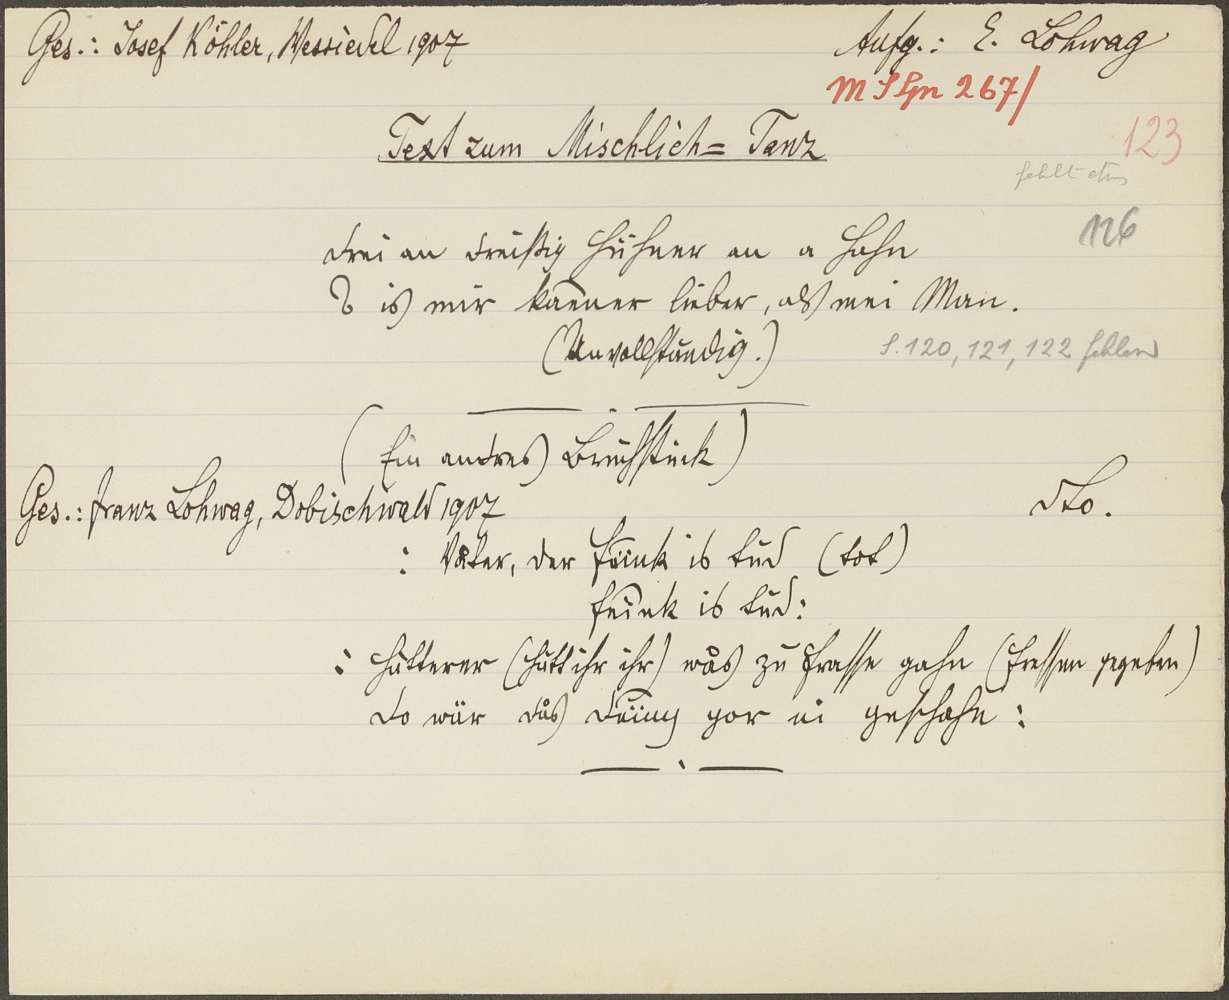 Ges.: Josef Köhler, Wessiedel 1907
Aufg.: E. Lohwag
123
Text zum Mischlich= Tanz
126
Drei an dreißig Hühner an a Hohn
S is mir kaener lieber, als mei Man.
(Unvollständig.)
S. 120, 121, 122 fehlen
(Ein andres Bruchstück)
Ges.: Franz Lohwag, Dobischwald 1907
dto.
: Våter, der Fäink is tud (tot)
Fäink is tud:
: Hätterer (Hätt ihr ihr) wås zu frasse gahn (fressen gegeben)
Do wär dås Däing gor ni geschahn :